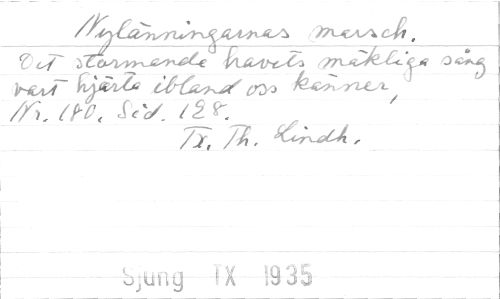 Nylänningarnas marsch.
Det stormande havets mäktiga sång
vart hjärta ibland oss känner,
Nr. 180. Sid. 128.
Tx. Th. Lindh.
Sjung TX 1935